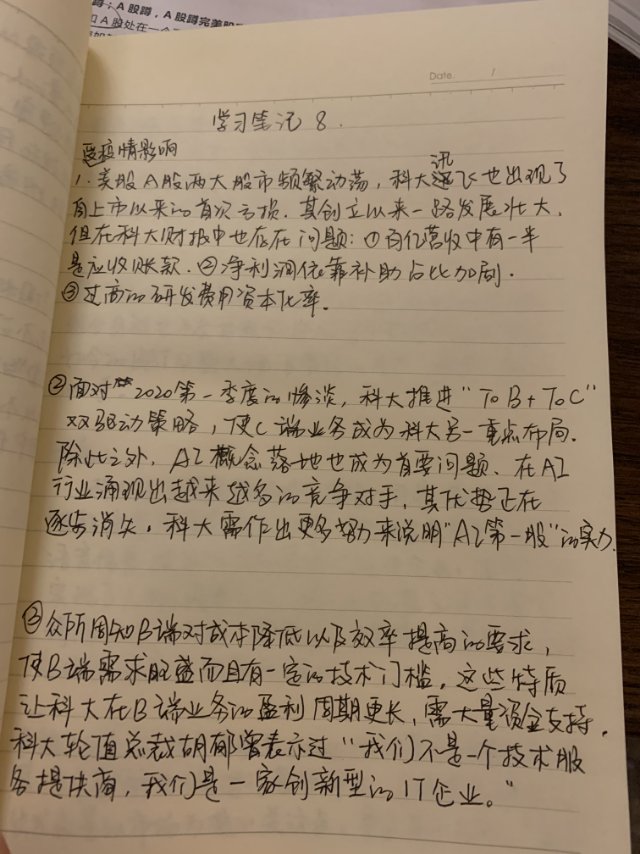 蹲；A股蹲，A股蹲完美股
A股处在一个
Date. /
学习笔记 8.
受疫情影响
1. 美股A股两大股市频繁动荡，科大讯飞也出现了
自上市以来的首次亏损. 其创立以来一路发展壮大,
但在科大财报中也存在问题: ①百亿营收中有一半
是应收账款. ②净利润依靠补助占比加剧.
③过高的研发费用资本化率.
②面对 2020第一季度的惨淡, 科大推进"To B + To C"
双驱动策略, 使C端业务成为科大另一重点布局.
除此之外, AI概念落地也成为首要问题. 在AI
行业涌现出越来越多的竞争对手, 其优势正在
逐步消失. 科大需作出更多努力来说明"AI第一股"的实力.
③众所周知B端对成本降低以及效率提高的要求,
使B端需求旺盛而且有一定的技术门槛. 这些特质
让科大在B端业务的盈利周期更长, 需大量资金支持.
科大轮值总裁胡郁曾表示过"我们不是一个技术服
务提供商, 我们是一家创新型的IT企业。"